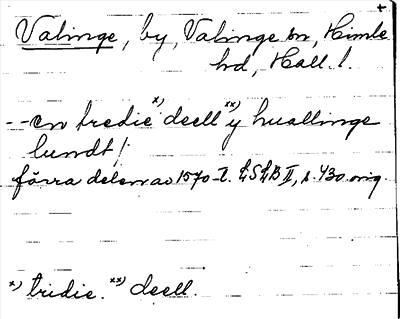 +
Valinge, by, Valinge sn, Himle
hd, Hall. l.
-- en tredie x) deell xx) y huallinge
lundt/
förra delen av 1570-t. LSLB II, s. 430. orig.
x) tridie. xx) deell.